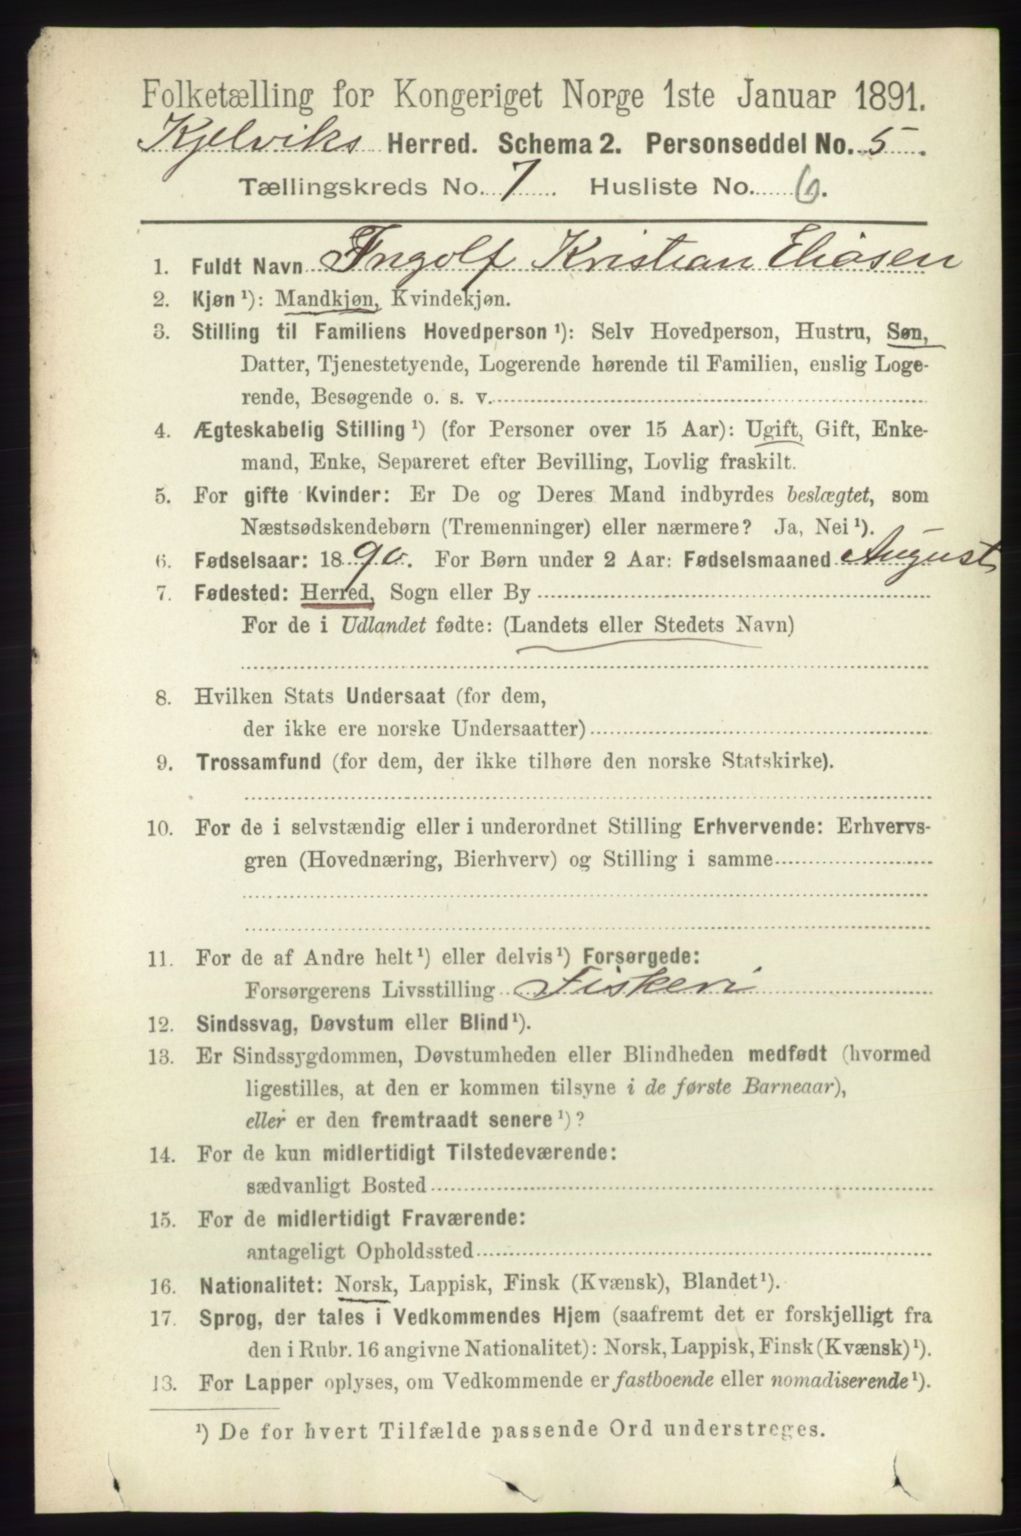 Folketælling for Kongeriget Norge 1ste Januar 1891.
Kjelviks Herred. Schema 2. Personseddel No. 5.
Tællingskreds No. 7. Husliste No. 6.
1. Fuldt Navn Ingolf Kristian Eliasen
2. Kjøn ¹): Mandkjøn, Kvindekjøn.
3. Stilling til Familiens Hovedperson ¹): Selv Hovedperson, Hustru, Søn,
Datter, Tjenestetyende, Logerende hørende til Familien, enslig Loge-
rende, Besøgende o. s. v.
4. Ægteskabelig Stilling ¹) (for Personer over 15 Aar): Ugift, Gift, Enke-
mand, Enke, Separeret efter Bevilling, Lovlig fraskilt.
5. For gifte Kvinder: Er De og Deres Mand indbyrdes beslægtet, som
Næstsødskendebørn (Tremenninger) eller nærmere? Ja, Nei ¹).
6. Fødselsaar: 1890. For Børn under 2 Aar: Fødselsmaaned August
7. Fødested: Herred, Sogn eller By
For de i Udlandet fødte: (Landets eller Stedets Navn)
8. Hvilken Stats Undersaat (for dem,
der ikke ere norske Undersaatter)
9. Trossamfund (for dem, der ikke tilhøre den norske Statskirke).
10. For de i selvstændig eller i underordnet Stilling Erhvervende: Erhvervs-
gren (Hovednæring, Bierhverv) og Stilling i samme
11. For de af Andre helt ¹) eller delvis ¹) Forsørgede:
Forsørgerens Livsstilling Fiskeri
12. Sindssvag, Døvstum eller Blind ¹).
13. Er Sindssygdommen, Døvstumheden eller Blindheden medfødt (hvormed
ligestilles, at den er kommen tilsyne i de første Barneaar),
eller er den fremtraadt senere ¹)?
14. For de kun midlertidigt Tilstedeværende:
sædvanligt Bosted
15. For de midlertidigt Fraværende:
antageligt Opholdssted
16. Nationalitet: Norsk, Lappisk, Finsk (Kvænsk), Blandet ¹).
17. Sprog, der tales i Vedkommendes Hjem (saafremt det er forskjelligt fra
den i Rubr. 16 angivne Nationalitet): Norsk, Lappisk, Finsk (Kvænsk) ¹).
13. For Lapper oplyses, om Vedkommende er fastboende eller nomadiserende ¹).
¹) De for hvert Tilfælde passende Ord understreges.